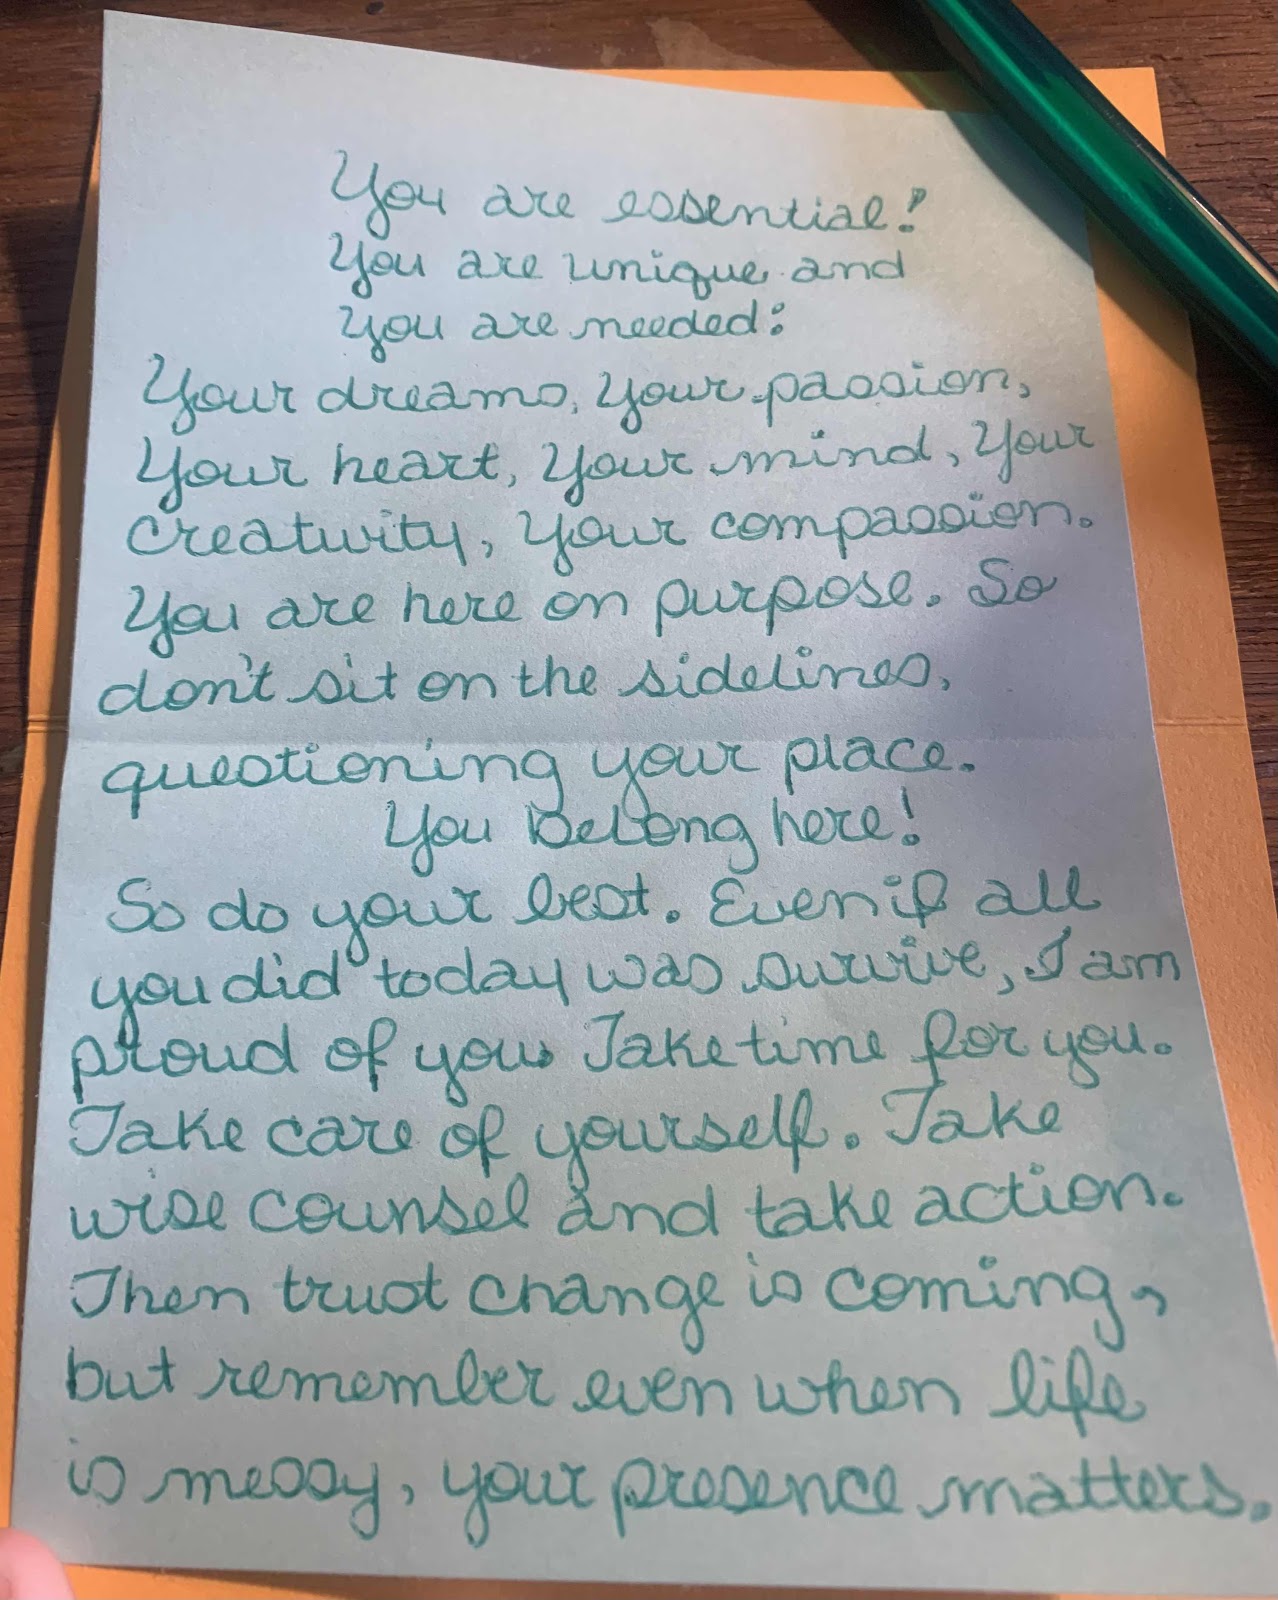 You are essential!
You are unique and
you are needed:
Your dreams, Your passion,
Your heart, Your mind, Your
creativity, Your compassion.
You are here on purpose. So
don't sit on the sidelines,
questioning your place.
You belong here!
So do your best. Even if all
you did today was survive, I am
proud of you. Take time for you.
Take care of yourself. Take
wise counsel and take action.
Then trust change is coming,
but remember even when life
is messy, your presence matters.